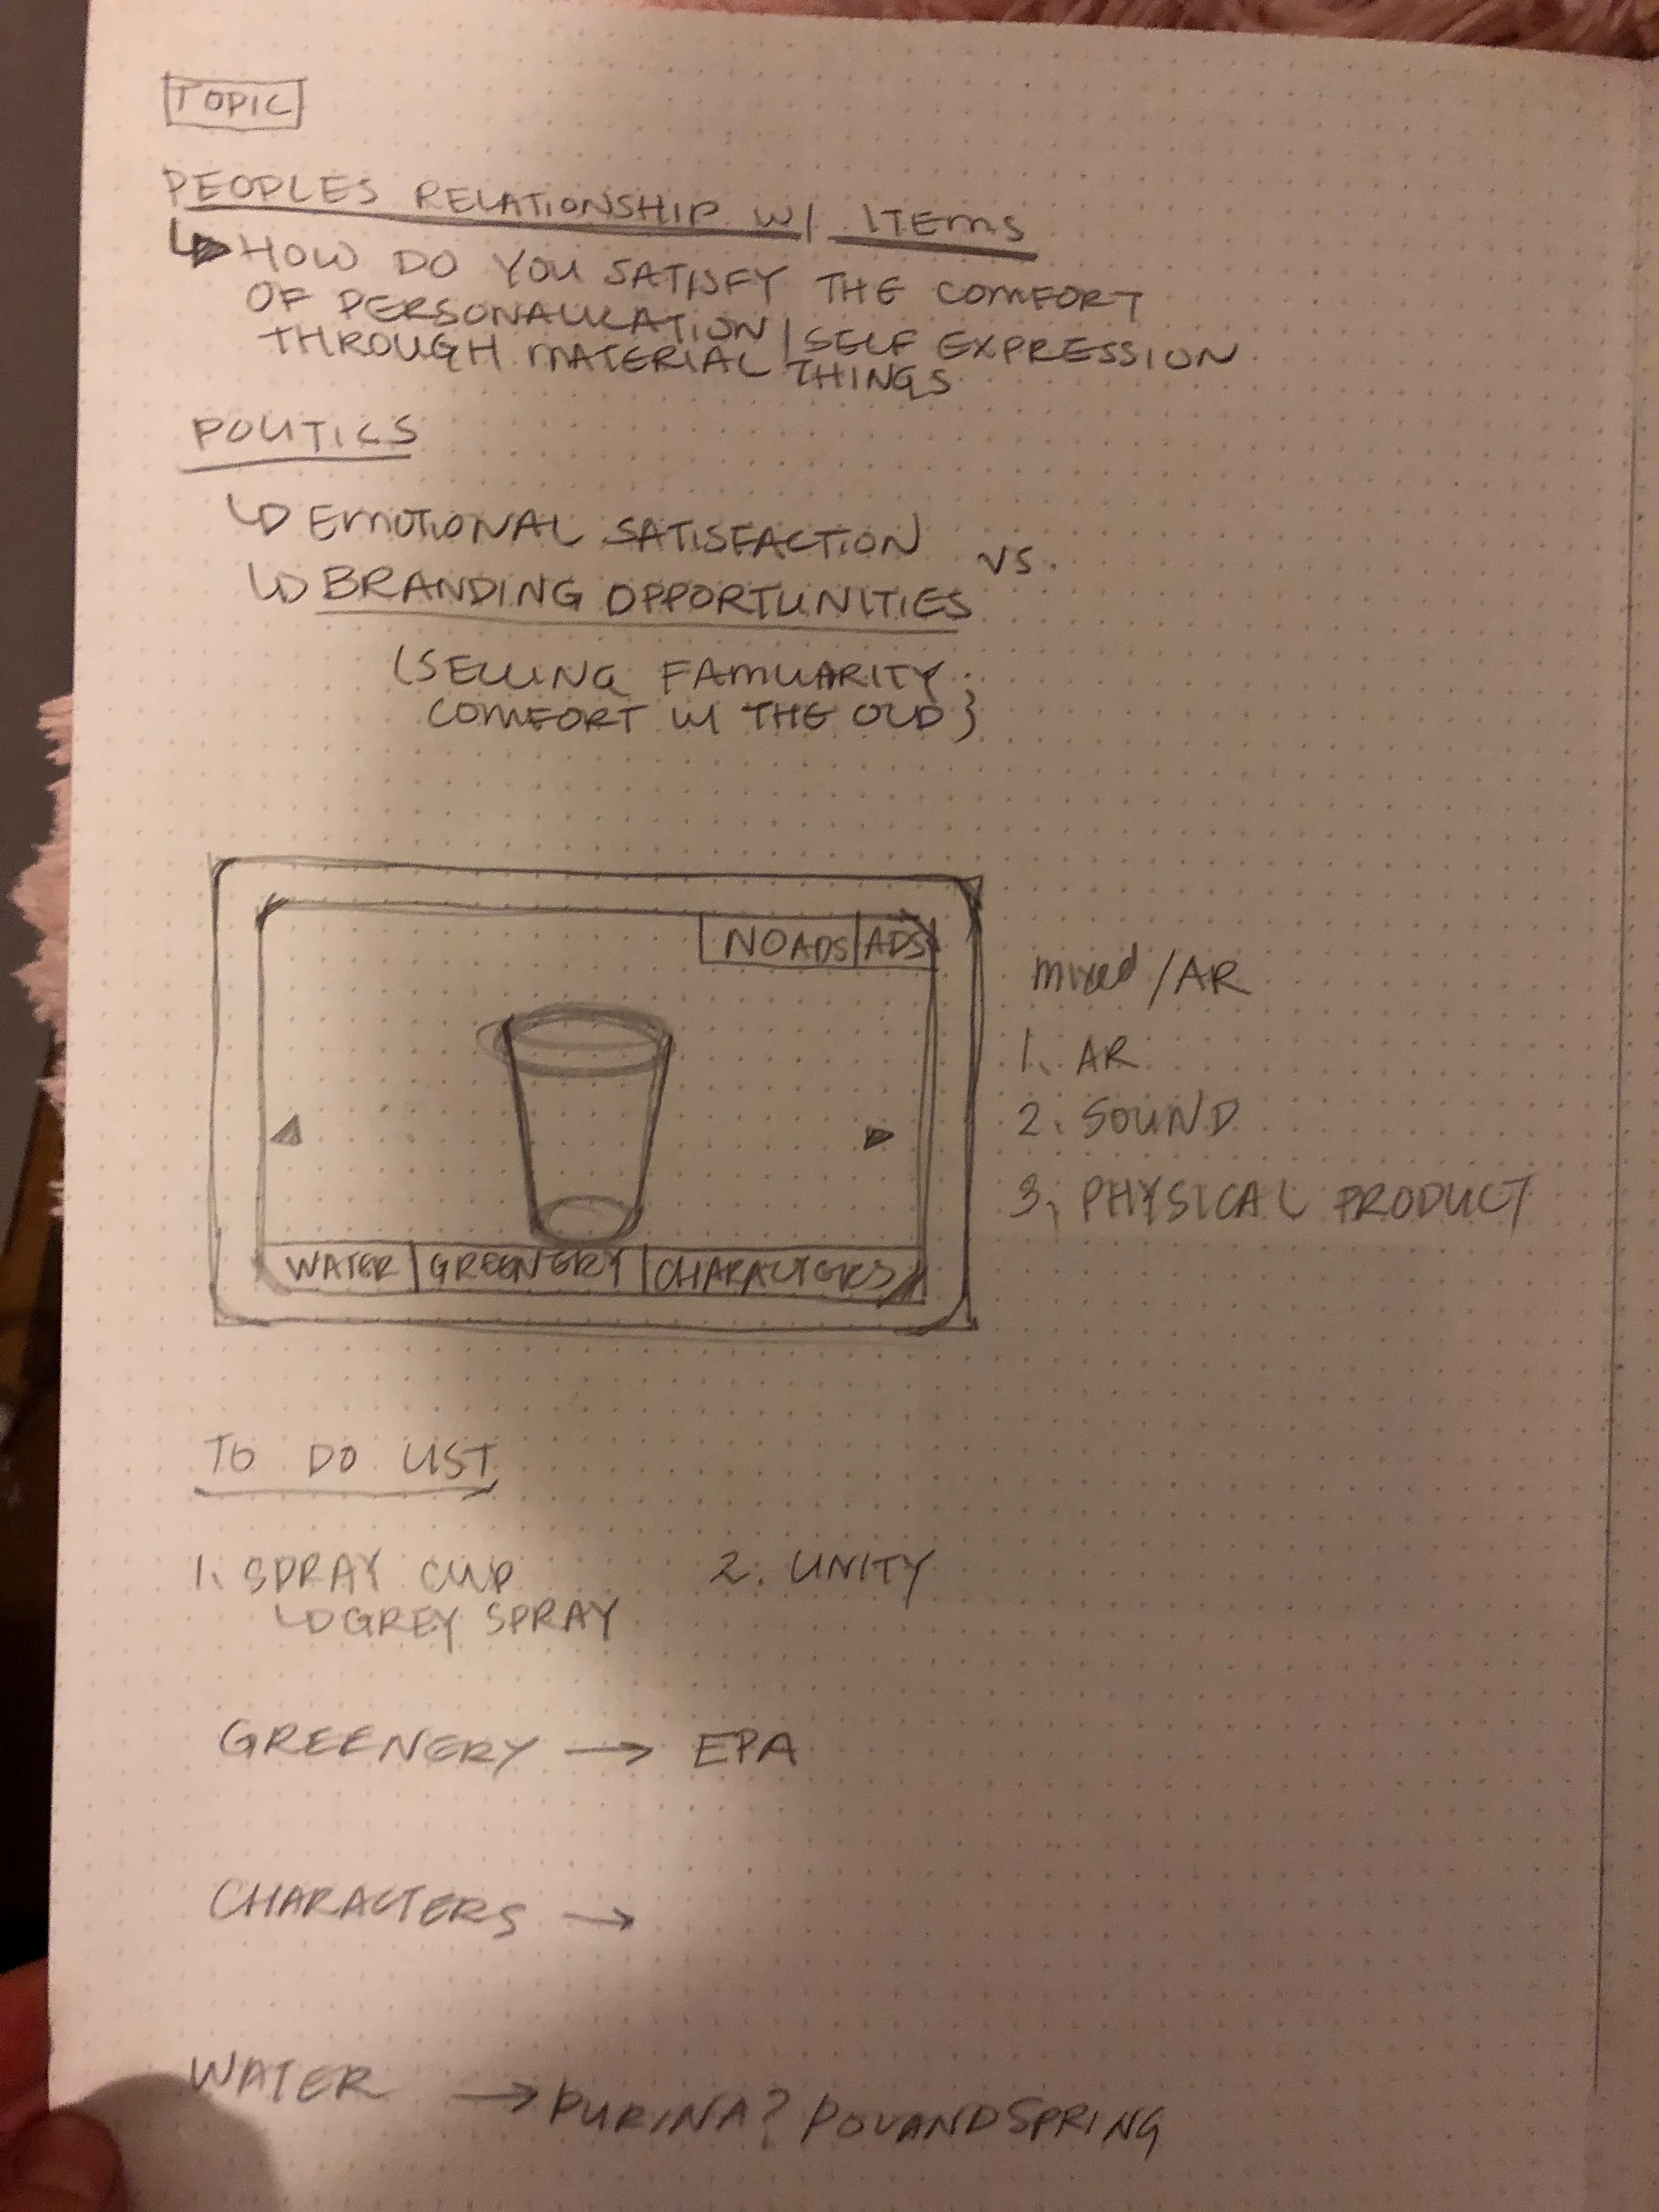 TOPIC
PEOPLES RELATIONSHIP W/ ITEMS
HOW DO YOU SATISFY THE COMFORT
OF PERSONALIZATION / SELF EXPRESSION
THROUGH MATERIAL THINGS
POLITICS
EMOTIONAL SATISFACTION vs.
BRANDING OPPORTUNITIES
(SELLING FAMILIARITY
COMFORT W/ THE OLD}
NO ADS ADS
mixed / AR
1. AR
2. SOUND
3. PHYSICAL PRODUCT
WATER GREENERY CHARACTERS
TO DO LIST
1. SPRAY CUP 2. UNITY
GREY SPRAY
GREENERY → EPA
CHARACTERS →
WATER → PURINA? POLANDSPRING